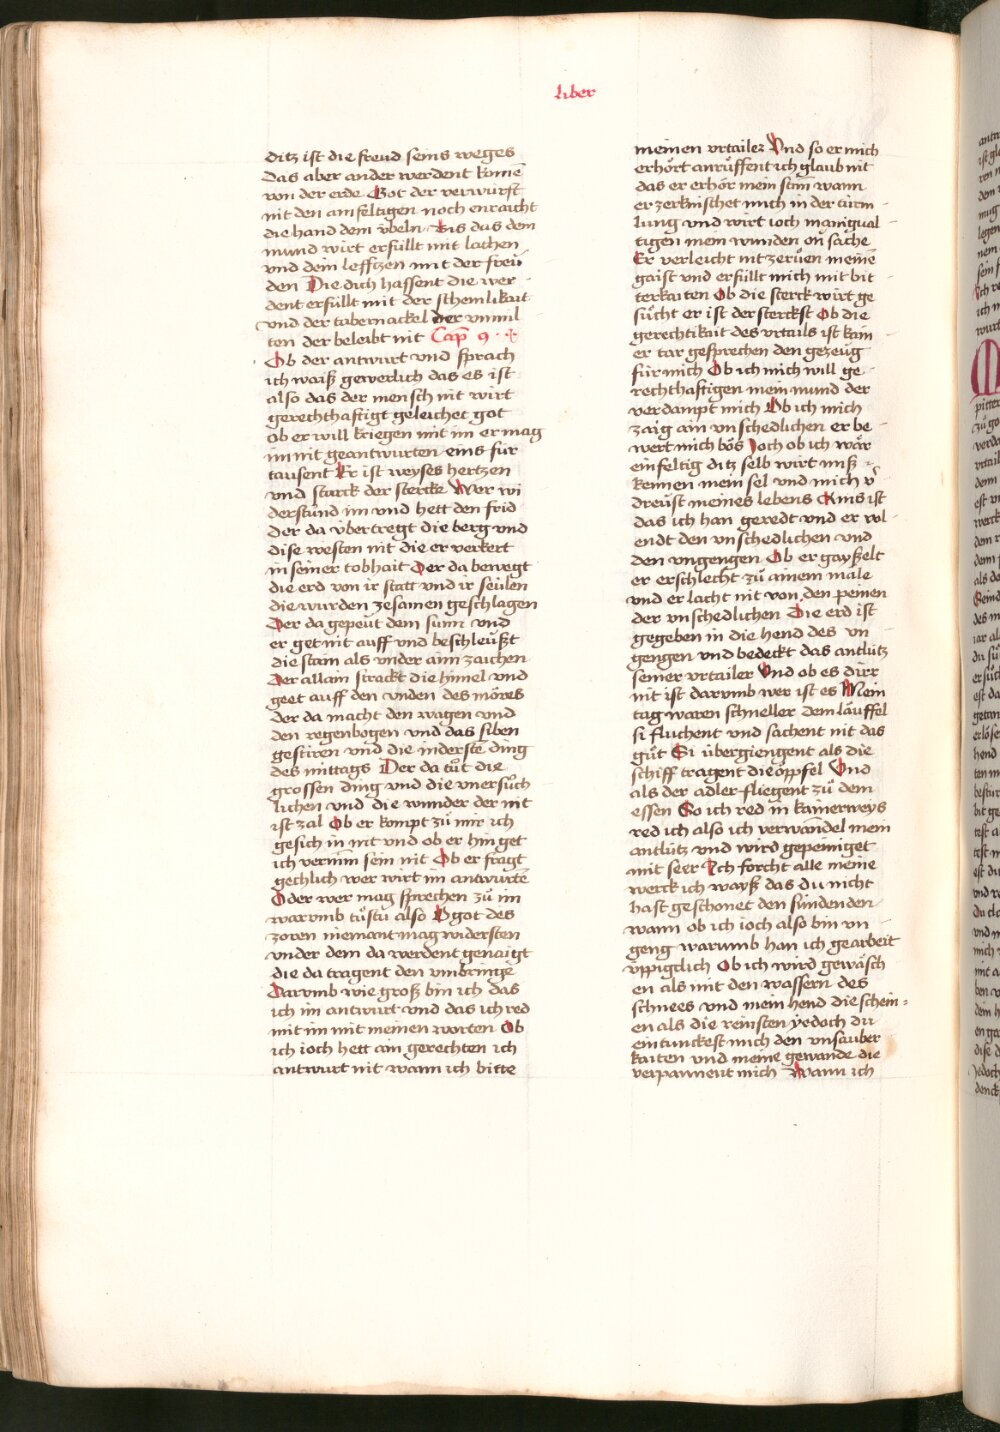 liber
ditz ist die freud seins weges
das aber ander werdent komē
von der erde Got der verwürft
nit den ainfeltigen noch enraicht
die hand dem vbeln Bis das dem
mund wirt erfüllt mit lachen
vnd dein lefftzen mit der freü
den Die dich hassent die wer
dent erfüllt mit der schemlikait
vnd der tabernackel der vnmil
ten der beleibt nit Cap 9
Ob der antwurt vnd sprach
ich waiß gewerlich das es ist
also das der mensch nit wirt
gerechthaftigt geleichet got
ob er will kriegen mit im er mag
im nit geantwurten eins für
tausent Er ist weyses hertzen
vnd starck der stercke Wer wi
derstünd im vnd hett den frid
Der da übertregt die berg vnd
dise westen nit die er verkert
in seiner tobhait Der da bewegt
die erd von ir statt vnd ir seülen
die wurden zesamen geschlagen
Der da gepeüt dem sunn vnd
er get nit auff vnd beschleüßt
die stern als vnder aim zaichen
Der allain strackt die himel vnd
geet auff den vnden des möres
der da macht den wagen vnd
den regenbogen vnd das siben
gestiren vnd die inderste ding
des mittags Der da tüt die
grossen ding vnd die vnersüch
lichen vnd die wunder der nit
ist zal Ob er kompt zů mir ich
gesich in nit vnd ob er hin get
ich vernim sein nit Ob er fragt
gechlich wer wirt im antwurtē
Oder wer mag sprechen zů im
warvmb tůstu also O got des
zoren niemant mag widersten
vnder dem da werdent genaigt
die da tragent den vmbringe
Darvmb wie groß bin ich das
ich im antwurt vnd das ich red
mit im mit meinen worten Ob
ich ioch hett ain gerechten ich
antwurt nit wann ich bitte
meinen vrtailer Vnd so er mich
erhört anrüffent ich glaub nit
das er erhör mein stim wann
er zerknischet mich in der türm
lung vnd wirt ioch manigual
tigen mein wunden on sache
Er verleicht nit zerüen meinē
gaist vnd erfüllt mich mit bit
terkaiten Ob die sterck wirt ge
sücht er ist der sterckst Ob die
gerechtikait des vrtails ist kain
er tar gesprechen den gezeüg
für mich Ob ich mich will ge
rechthaftigen mein mund der
verdampt mich Ob ich mich
zaig ain vnschedlichen er be
wert mich bös Joch ob ich wär
einfeltig ditz selb wirt miß
kennen mein sel vnd mich v̄
dreüst meines lebens Ains ist
das ich han geredt vnd er vol
endt den vnschedlichen vnd
den vngengen Ob er gayßelt
er erschlecht zů ainem male
vnd er lacht nit von den peinen
der vnschedlichen Die erd ist
gegeben in die hend des vn
gengen vnd bedeckt das antlütz
seiner vrtailer Vnd ob es dirr
nit ist darvmb wer ist es Mein
tag waren schneller dem läuffel
si fluchent vnd sachent nit das
güt Si übergiengent als die
schiff tragent die öppfel Vnd
als der adler fliegent zů dem
essen So ich red in kainerweys
red ich also ich verwandel mein
antlütz vnd wird gepeiniget
mit seer Ich forcht alle meine
werck ich wayß das du nicht
hast geschonet den sündenden
wann ob ich ioch also bin vn
geng warumb han ich gearbeit
üppigclich Ob ich wird gewäsch
en als mit den wassern des
schnees vnd mein hend die schein
en als die reinsten yedoch du
eintunckest mich den vnsauber
kaiten vnd meine gewande die
verpannent mich Wann ich